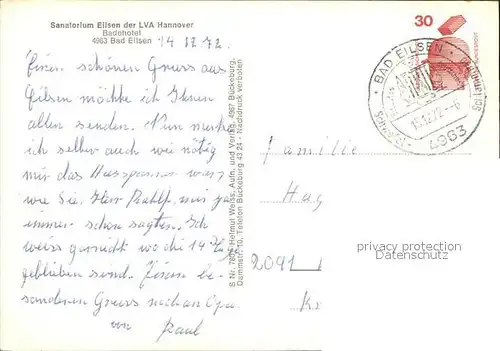 Sanatorium Eilsen der LVA Hannover
Badehotel
4963 Bad Eilsen
14 12 72.
Einen schönen Gruss aus
Eilsen möchte ich Ihnen
allen senden. Nun merke
ich selber auch wie nötig
mir das Ausspannen war,
wie Sie, Herr mir ja
immer schon sagten. Ich
weiss garnicht wo die 14 Tage
geblieben sind. Einen be-
sonderen Gruss noch an Opa.
von Paul
S Nr. Helmut Weiss, Aufn. und Verlag, 4967 Bückeburg,
Dammstr. 10, Telefon Bückeburg 43 24 - Nachdruck verboten
30
BAD EILSEN
15.12.72.-6
4963
Familie
Hay
2091
privacy protection
Datenschutz